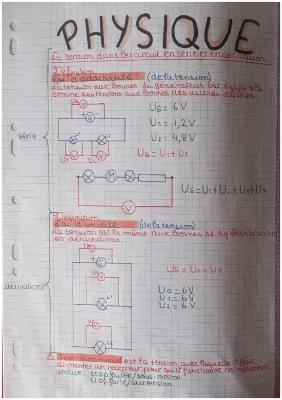 PHYSIQUE
La tension dans les circuit en série et en dérivation
Définition
Loi d'additivité (de la tension)
La tension aux bornes du générateur est égale à la
somme des tensions aux bornes des autres dipôles
UG = 6V
U1 = 1,2V
U2 = 4,8V
série
UG = U1 + U2
UG = U1 + U2 + U3 + U4
Définition
Loi d'unicité (de la tension)
La tension est la même aux bornes de dipôles
en dérivations.
UG = U1 = U2
dérivation
UG = 6V
U1 = 6V
U2 = 6V
est la tension avec laquelle il faut
alimenter un récepteur pour qu'il fonctionne normalement
indice: trop faible/sous-tension
trop forte/surtension